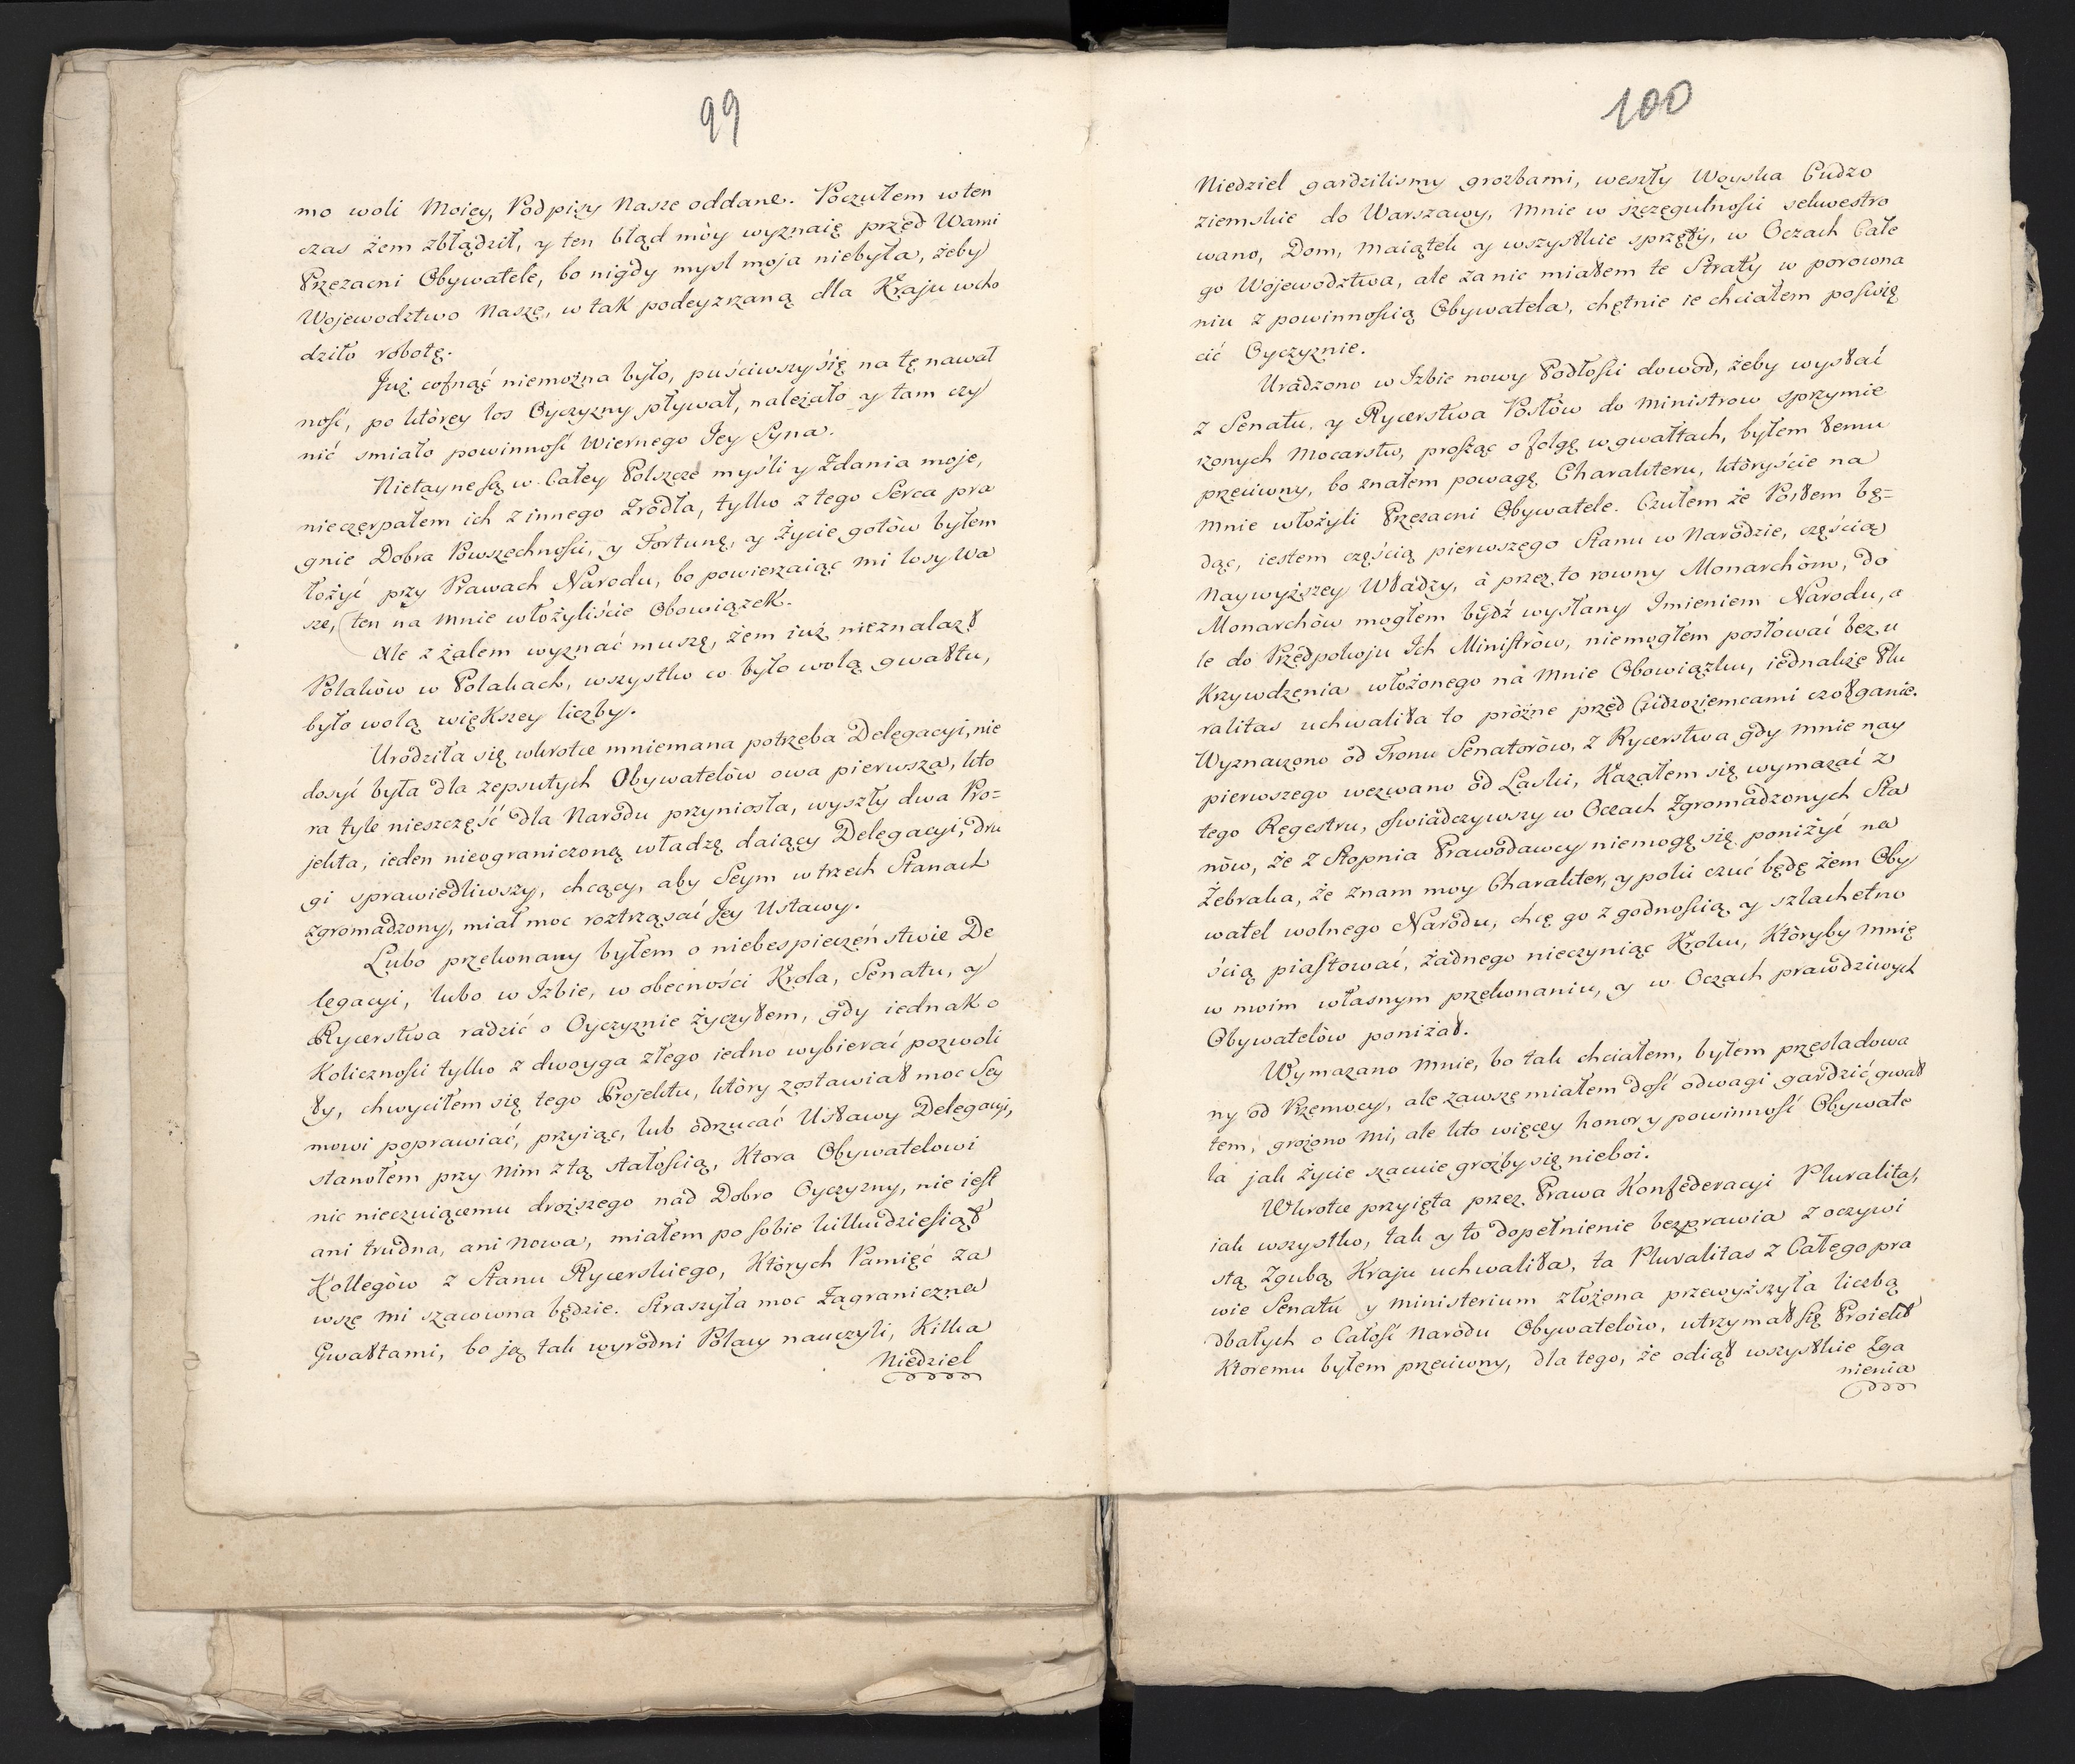 99
mo woli Moiey, Podpisy Nasze oddane. Poczułem w ten
czas żem zbłądził, y ten błąd mòy wyznaię przed Wami
Przezacni Obywatele, bo nigdy mysl moja niebyła, żeby
Wojewodztwo Nasze, w tak podeyzrzaną dla Kraju wcho
dziło robotę.
Już cofnąć niemożna było, puściwszy się na tę nawał
ność, po którey los Oyczyzny pływał, należało y tam czy
nić smiało powinność Wiernego Jey Syna.
Nietayne są w Całey Polszcze myśli y Zdania moje,
nieczerpałem ich z innego Zrodła, tylko z tego Serca pra
gnie Dobra Powszechności, y Fortunę, y Życie gotòw byłem
łożyć przy Prawach Narodu, bo powierzaiąc mi losy Wa
sze, ten na mnie włożyliście Obowiązek.
Ale z żalem wyznać muszę, żem iuż nieznalazł
Polakòw w Polakach, wszystko co było wolą gwałtu,
było wolą większey liczby.
Urodziła się wkrotce mniemana potrzeba Delegacyi, nie
dosyć była dla zepsutych Obywatelòw owa pierwsza, kto
ra tyle nieszczęść dla Narodu przyniosła, wyszły dwa Pro=
jekta, ieden nieograniczoną władzę daiący Delegacyi, dru
gi sprawiedliwszy, chcący, aby Seym w trzech Stanach
zgromadzony, miał moc roztrząsać Jey Ustawy.
Lubo przekonany byłem o niebespieczeństwie De
legacyi, lubo w Izbie, w obecności Krola, Senatu, y
Rycerstwa radzić o Oyczyznie życzyłem, gdy iednak o
Koliczności tylko z dwoyga złego iedno wybierać pozwoli
ły, chwyciłem się tego Projektu, który zostawiał moc Sey
mowi poprawiać, przyiąć, lub odrzucać Ustawy Delegacyi,
stanołem przy Nim z tą stałością, Ktora Obywatelowi
nic nieczuiącemu droższego nad Dobro Oyczyzny, nie iest
ani trudna, ani Nowa, miałem po sobie kilkudziesiąt
Kollegòw z Stanu Rycerskiego, Których Pamięć za
wsze mi szacowna będzie. Straszyła moc Zagraniczna
Gwałtami, bo ją tak wyrodni Polacy nauczyli, Kilka
Niedziel
100
Niedziel gardzilismy grozbami, weszły Woyska Cudzo
ziemskie do Warszawy, Mnie w szczegulności sekwestro
wano, Dom, Maiątek y wszystkie sprzęty, w Oczach Całe
go Wojewodztwa, ale za nic miałem te Straty w porowna
niu z powinnością Obywatela, chętnie ie chciałem poświę
cić Oyczyznie.
Uradzono w Izbie nowy Podłości dowod, żeby wysłać
z Senatu, y Rycerstwa Posłòw do Ministrow sprzymie
rzonych Mocarstw, prosząc o folgę w gwałtach, byłem temu
przeciwny, bo znałem powagę Charakteru, któryście na
mnie włożyli Przezacni Obywatele. Czułem że Posłem bę=
dąc, iestem częścią pierwszego Stanu w Narodzie, częścią
Naywyższey Władzy, à przez to rowny Monarchòm, do
Monarchòw mogłem bydź wysłany Imieniem Narodu, a
le do Przedpokoju Ich Ministròw, niemogłem posłować bez u
Krzywdzenia włożonego na Mnie Obowiązku, iednakże Plu
ralitas uchwaliła to pròżne przed Cudzoziemcami czołganie.
Wyznaczono od Tronu Senatoròw, z Rycerstwa gdy mnie nay
pierwszego wezwano od Laski, Kazałem się wymazać z
tego Regestru, oświadczywszy w Oczach Zgromadzonych Sta
nòw, że z Stopnia Prawodawcy niemogę się poniżyć na
Żebraka, że znam moy Charakter, y poki czuć będę żem Oby
watel wolnego Narodu, chcę go z godnością y szlachetno
ścią piastować, żadnego nieczyniąc Kroku, Któryby mnię
w moim własnym przekonaniu, y w Oczach prawdziwych
Obywatelòw poniżał.
Wymazano Mnie, bo tak chciałem, byłem przesladowa
ny od Przemocy, ale zawsze miałem dość odwagi gardzić gwał
tem, grożono Mi, ale kto więcey honor y powinność Obywate
la jak życie szacuie groźby się nieboi.
Wkrotce przyięta przez Prawa Konfederacyi Pluralitas,
iak wszystko, tak y to dopełnienie bezprawia z oczywi
stą Zgubą Kraju uchwaliła, ta Pluralitas z Całego pra
wie Senatu y Ministerium złożona przewyższyła liczbą
dbałych o Całość Narodu Obywatelòw, utrzymał się Proiekt
Ktoremu byłem przeciwny, dla tego, że odiął wszystkie Zga
nienia